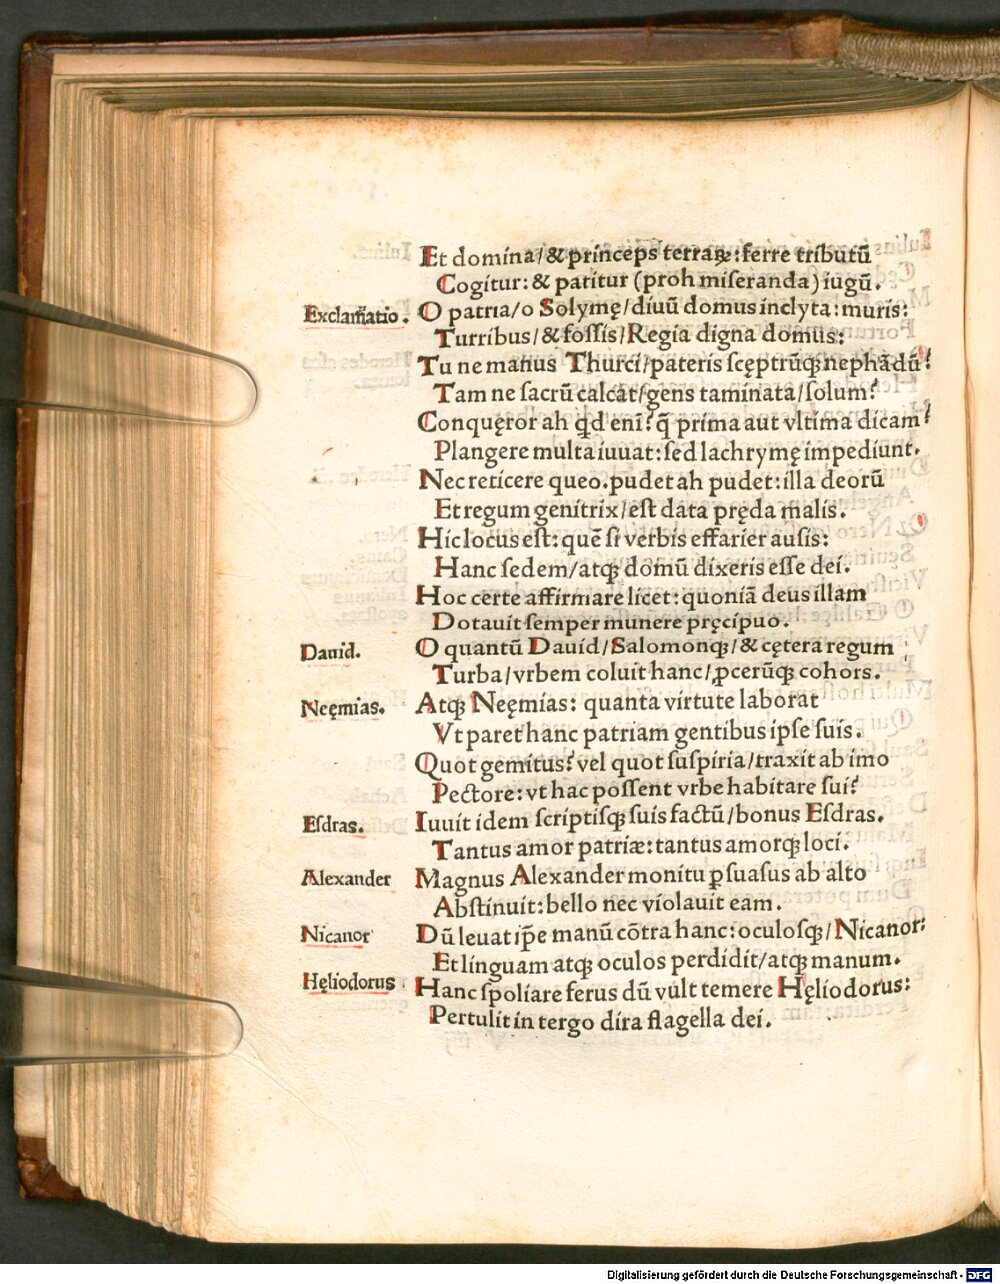 Et domina/& princeps terraꝝ: ferre tributū
Cogitur: & patitur (proh miseranda) iugū.
Exclamatio. O patria/o Solymę/diuū domus inclyta: muris:
Turribus/& fossis/Regia digna domus:
Tu ne manus Thurci/pateris scęptrūqꝫ nephādū?
Tam ne sacrū calcāt/gens taminata/solum?
Conquęror ah qd enī? q̄ prima aut vltima dicam?
Plangere multa iuuat: sed lachrymę impediunt.
Nec reticere queo. pudet ah pudet: illa deorū
Et regum genitrix/est data pręda malis.
Hic locus est: quē si verbis effarier ausis:
Hanc sedem/atqꝫ domū dixeris esse dei.
Hoc certe affirmare licet: quoniā deus illam
Dotauit semper munere pręcipuo.
Dauid. O quantū Dauid/Salomonqꝫ/& cętera regum
Turba/vrbem coluit hanc/ꝓcerūqꝫ cohors.
Neęmias. Atqꝫ Neęmias: quanta virtute laborat
Vt paret hanc patriam gentibus ipse suis.
Quot gemitus? vel quot suspiria/traxit ab imo
Pectore: vt hac possent vrbe habitare sui?
Esdras. Iuuit idem scriptisqꝫ suis factū/bonus Esdras.
Tantus amor patriæ: tantus amorqꝫ loci.
Alexander Magnus Alexander monitu ꝑsuasus ab alto
Abstinuit: bello nec violauit eam.
Nicanor Dū leuat ip̄e manū cōtra hanc: oculosqꝫ/Nicanor:
Et linguam atqꝫ oculos perdidit/atqꝫ manum.
Hęliodorus Hanc spoliare ferus dū vult temere Hęliodorus:
Pertulit in tergo dira flagella dei.
Digitalisierung gefördert durch die Deutsche Forschungsgemeinschaft - DFG